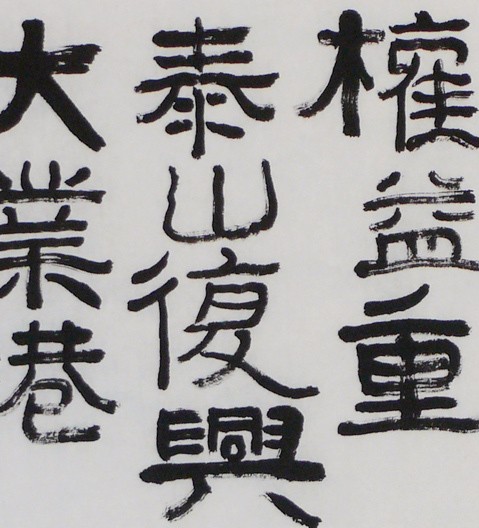 權益重
泰山復興
大業巷